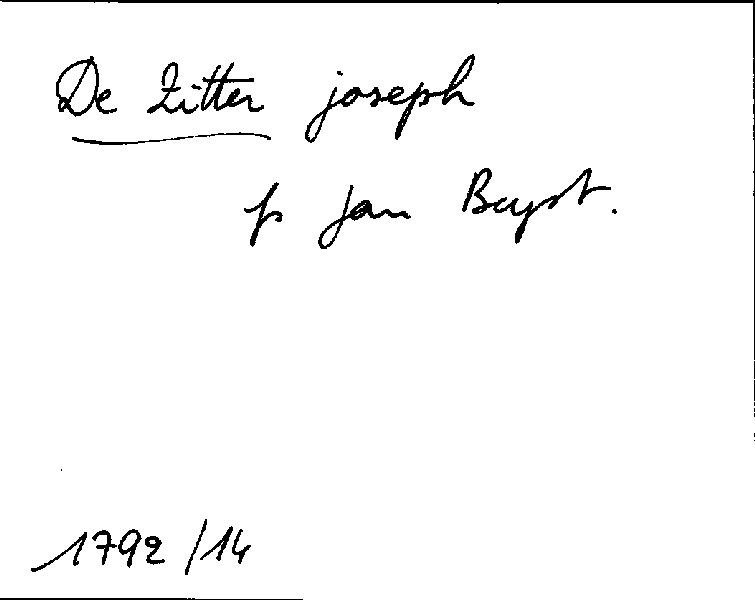 De Zitter joseph
fs Jan Bapt.
1792/14